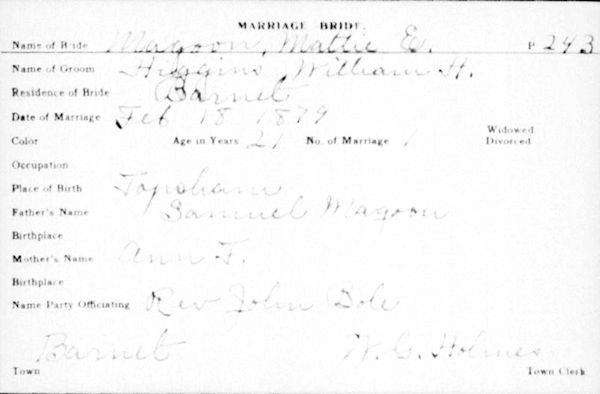 MARRIAGE BRIDE.
Name of Bride Magoon, Mattie E. P 243
Name of Groom Higgins William H.
Residence of Bride Barnet
Date of Marriage Feb 18 1879
Color Age in Years 21 No. of Marriage 1 Widowed Divorced
Occupation
Place of Birth Topsham
Father's Name Samuel Magoon
Birthplace
Mother's Name Ann F.
Birthplace
Name Party Officiating Rev John Bole
Barnet W. G. Holmes
Town Town Clerk